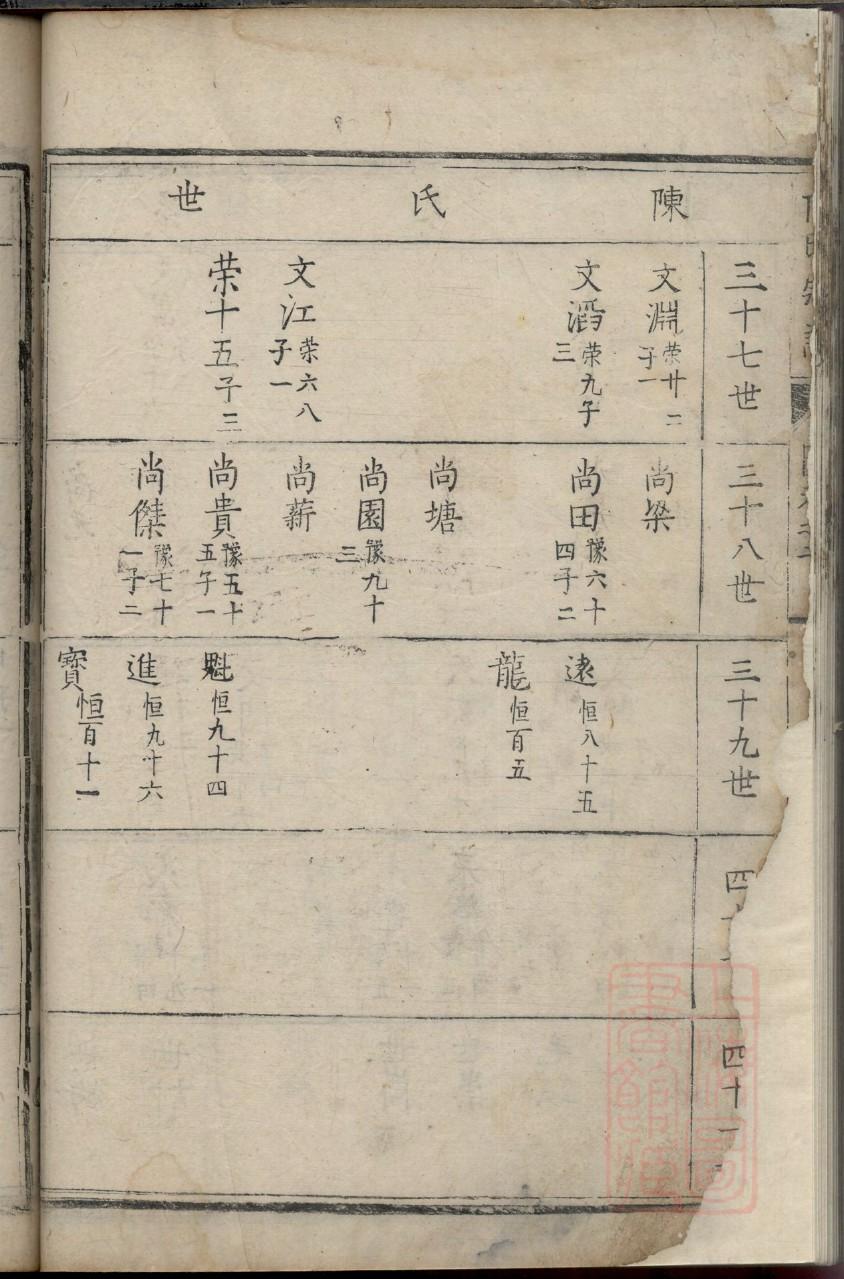 陳氏世
三十七世
文淵 荣廿二子一
文滔 荣九子三
文江 荣六八子一
荣十五子三
三十八世
尚梁
尚田 豫六十四子二
尚塘
尚園 豫九十三
尚薪
尚貴 豫五十五子一
尚傑 豫七十一子二
三十九世
逺 恒八十五
龍 恒百五
魁 恒九十四
進 恒九十六
寳 恒百十一
四十
四十一